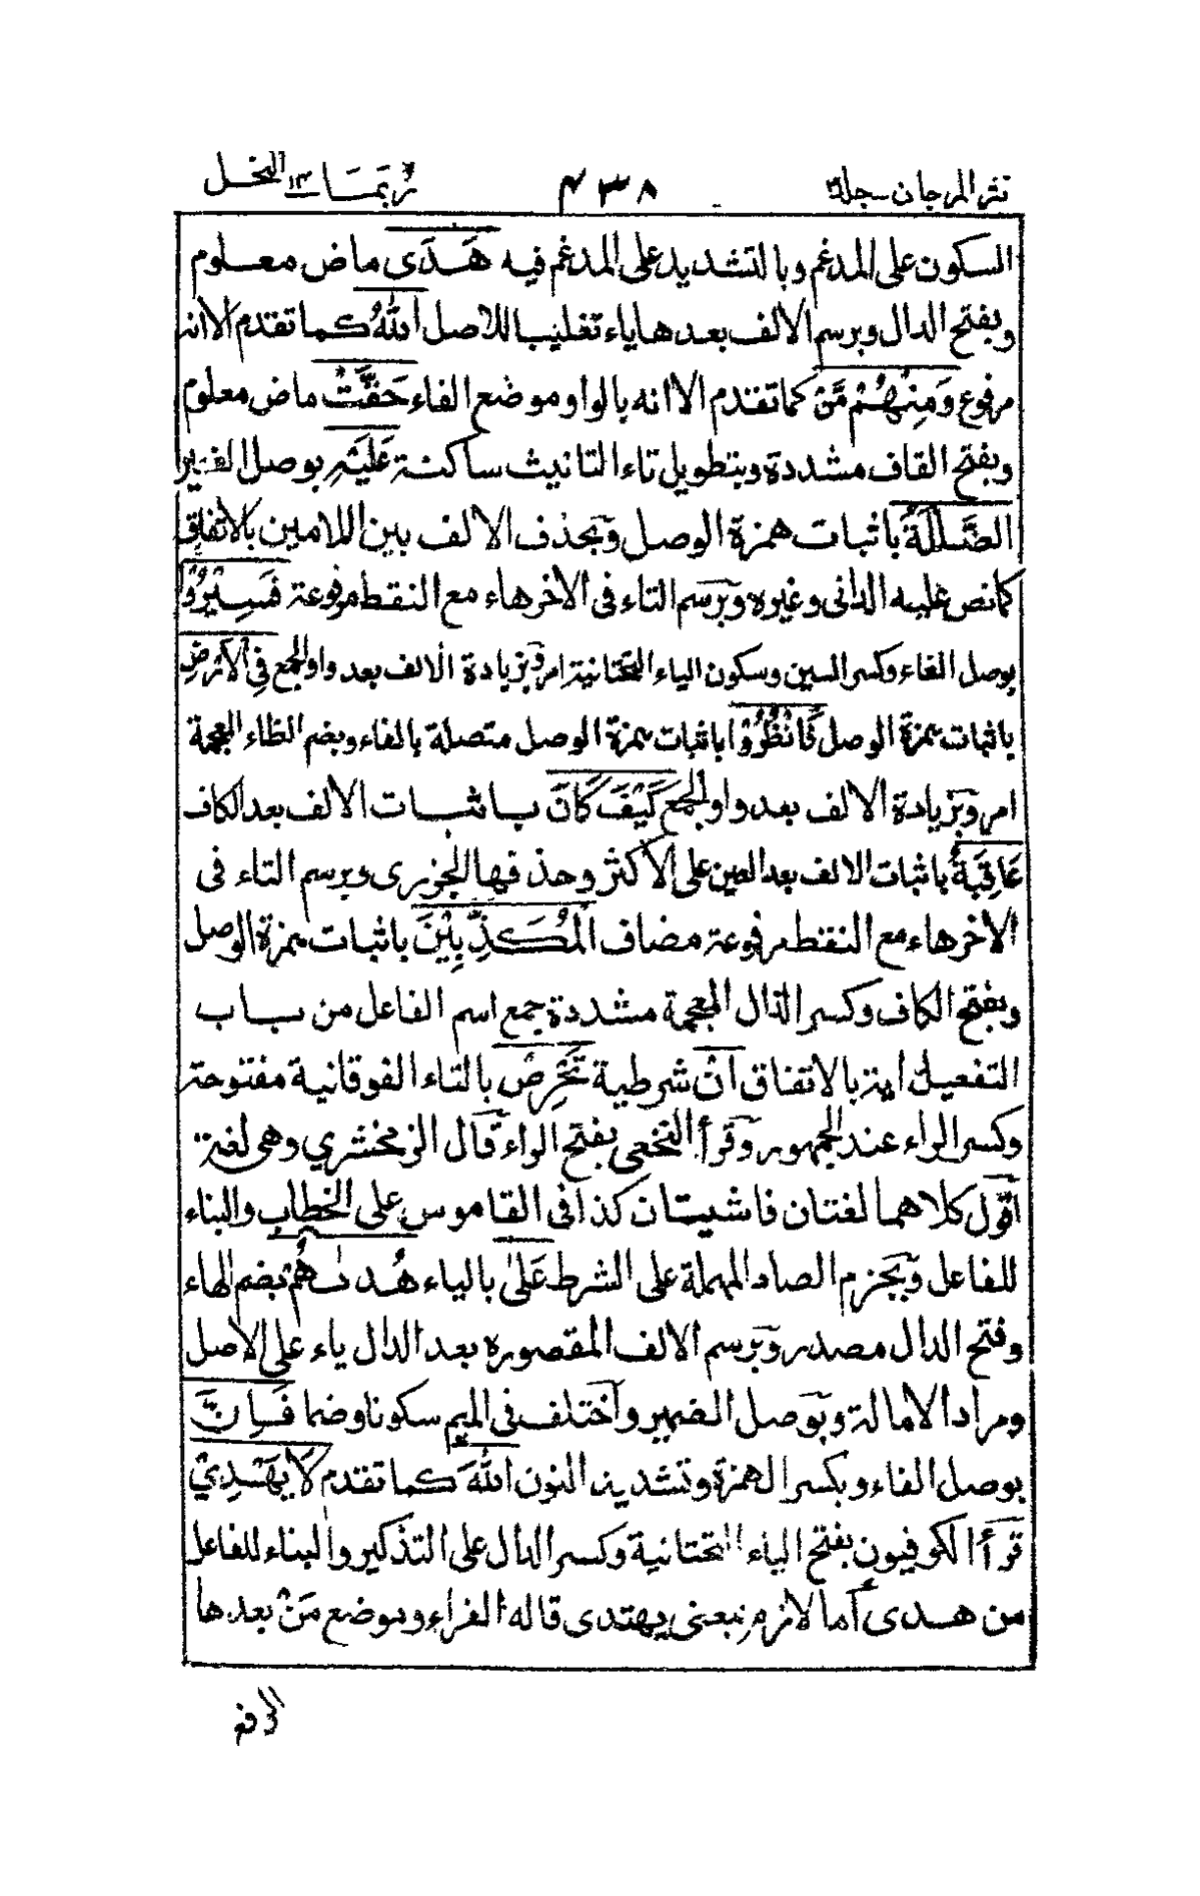 نثر المرجان جلد ٤٣٨ ربما ١٤ النحل
السكون على المدغم وبالتشديد على المدغم فيه هَدَى ماض معلوم
وبفتح الدال وبرسم الالف بعدها ياء تغليبا للاصل اللّٰهُ كما تقدم الا انه
مرفوع وَمِنْهُمْ مَّنْ كما تقدم الا انه بالواو موضع الفاء حَقَّتْ ماض معلوم
وبفتح القاف مشددة وبتطويل تاء التانيث ساكنة عَلَيْهِ بوصل الضمير
الضَّلٰلَةُ باثبات همزة الوصل وبحذف الالف بين اللامين بالاتفاق
كما نص عليه الدانى وغيره وبرسم التاء فى الاخر هاء مع النقط مرفوعة فَسِيْرُوْا
بوصل الفاء وكسر السين وسكون الياء التحتانية امر وبزيادة الالف بعد واو الجمع فِى الْاَرْضِ
باثبات همزة الوصل فَانْظُرُوْا باثبات همزة الوصل متصلة بالفاء وبضم الظاء المعجمة
امر وبزيادة الالف بعد واو الجمع كَيْفَ كَانَ باثبات الالف بعد الكاف
عَاقِبَةُ باثبات الالف بعد العين على الاكثر وحذفها الجزرى وبرسم التاء فى
الاخر هاء مع النقط مرفوعة مضاف الْمُكَذِّبِيْنَ باثبات همزة الوصل
وبفتح الكاف وكسر الذال المعجمة مشددة جمع اسم الفاعل من باب
التفعيل اية بالاتفاق اِنْ شرطية تَحْرِصْ بالتاء الفوقانية مفتوحة
وكسر الراء عند الجمهور وقرأ النخعى بفتح الراء قال الزمخشري وهى لغة
اقول كلاهما لغتان فاشيتان كذا فى القاموس على الخطاب والبناء
للفاعل وبجزم الصاد المهملة على الشرط عَلٰى بالياء هُدٰىهُمْ بضم الهاء
وفتح الدال مصدر وبرسم الالف المقصورة بعد الدال ياء على الاصل
ومراد الامالة وبوصل الضمير واختلف فى الميم سكونا وضما فَاِنَّ
بوصل الفاء وبكسر الهمزة وتشديد النون اللّٰهَ كما تقدم لَا يَهْدِيْ
قرأ الكوفيون بفتح الياء التحتانية وكسر الدال على التذكير والبناء للفاعل
من هدى أما لازم بمعنى يهتدى قاله الفراء وموضع مَنْ بعدها